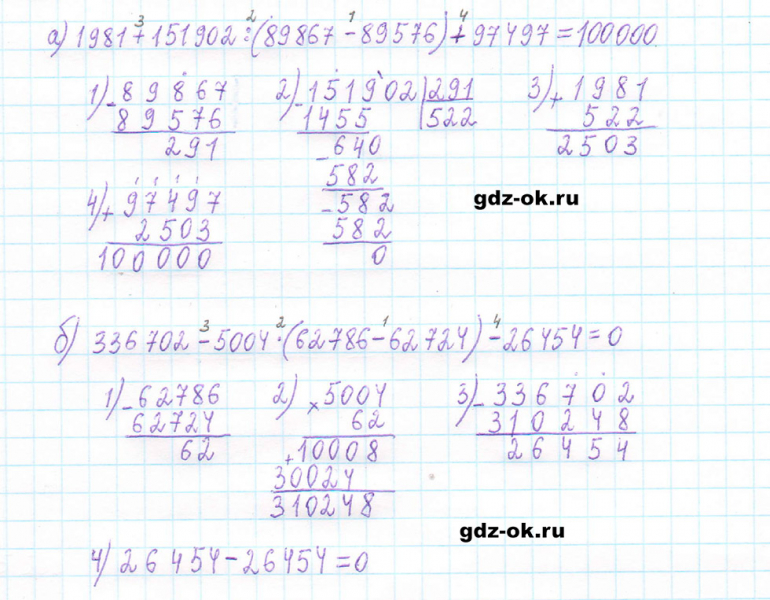 а) 1981 + 151902 : (89867 - 89576) + 97497 = 100000
3 2 1 4
1) - 89867
89576
291
2) - 151902 | 291
1455 | 522
- 640
582
- 582
582
0
3) + 1981
522
2503
gdz-ok.ru
4) + 97497
2503
100000
б) 336702 - 5004 · (62786 - 62724) - 26454 = 0
3 2 1 4
1) - 62786
62724
62
2) × 5004
62
+ 10008
30024
310248
3) - 336702
310248
26454
gdz-ok.ru
4) 26454 - 26454 = 0